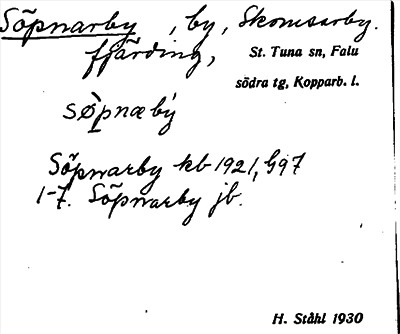 Söpnarby, by, Skomsarby.
fjärding, St. Tuna sn, Falu
södra tg, Kopparb. l.
søpnæby
Söpnarby kb 1921, G97
1-7. Söpnarby jb.
H. Ståhl 1930